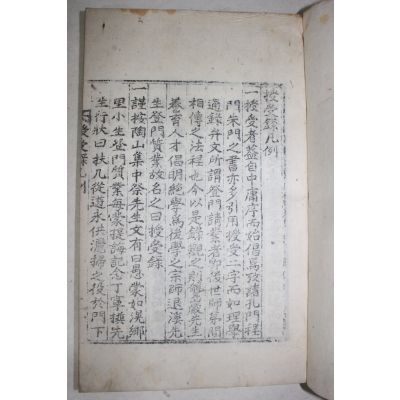 授受錄凡例
一授受者蓋自中庸序而始倡焉攷諸孔門程
門朱門之書亦多引用授受二字而如理學
通錄弁文所謂登門請業者卽後世師弟間
相傳之法程也今以是錄觀之則 先生
養育人才倡明絶學爲後學之宗師退溪先
生登門質業故名之曰授受錄
一謹按陶山集中祭先生文有曰愚蒙如滉鄕
里小生登門質業每蒙提誨記念丁寧撰先
生行狀曰扶几從道永供灑掃之役於門下
授受錄凡例